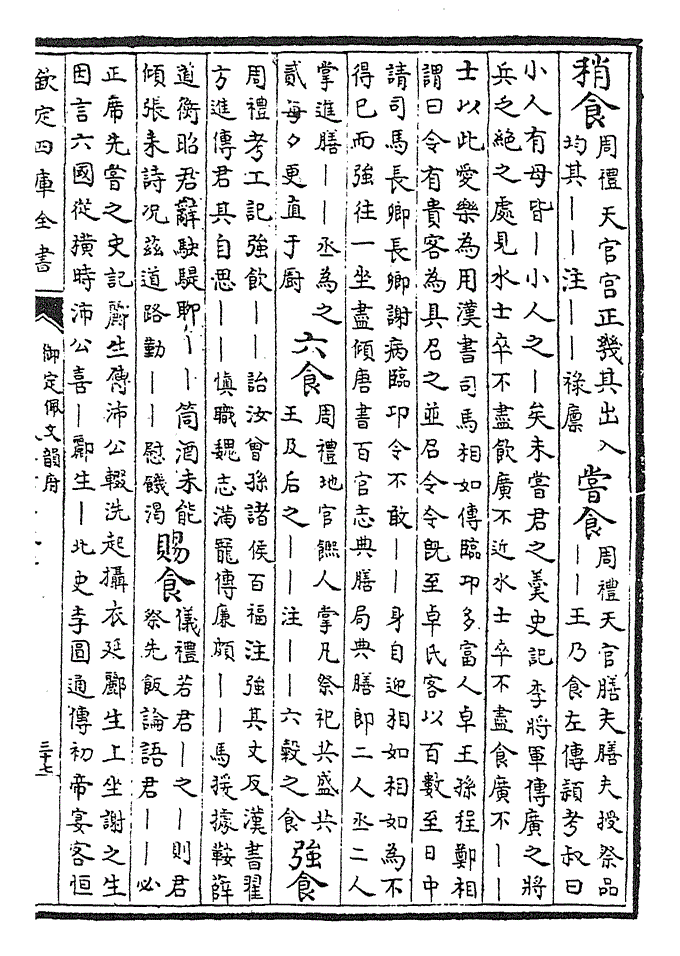 稍食
周禮天官宫正幾其出入
均其——注——祿廪
嘗食
周禮天官膳夫膳夫授祭品
——王乃食左傳頴考叔曰
小人有母皆—小人之—矣未嘗君之羹史記李将軍傳廣之将
兵之絶之處見水士卒不盡飲廣不近水士卒不盡食廣不——
士以此愛樂為用漢書司馬相如傳臨卭多富人卓王孫程鄭相
謂曰令有貴客為具召之並召令令既至卓氏客以百數至日中
請司馬長卿長卿謝病臨卭令不敢——身自迎相如相如為不
得已而強往一坐盡傾唐書百官志典膳局典膳郎二人丞二人
掌進膳——丞為之
貳每夕更直于厨
六食
周禮地官饎人掌凡祭祀共盛共
王及后之——注——六榖之食
強食
周禮考工記強飲——詒汝曾孫諸侯百福注強其丈反漢書翟
方進傳君其自思——慎職魏志滿寵傳廉頗——馬援據鞍薛
道衡昭君辭駃騠聊——筒酒未能
傾張耒詩况兹道路勤——慰饑渴
賜食
儀禮若君—之—則君
祭先飯論語君——必
正席先嘗之史記酈生傳沛公輟洗起攝衣延酈生上坐謝之生
因言六國從横時沛公喜—酈生—北史李圓通傳初帝宴客恒
欽定四庫全書
御定佩文韻府
三十七